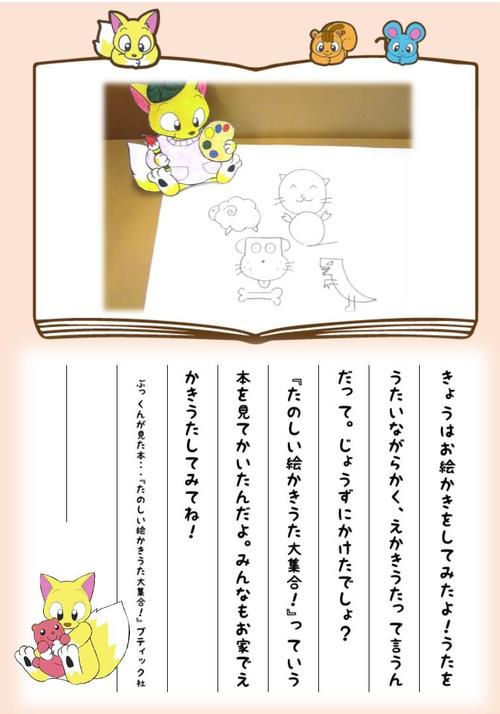 きょうはお絵かきをしてみたよ！うたを
うたいながらかく、えかきうたって言うん
だって。じょうずにかけたでしょ？
『たのしい絵かきうた大集合！』っていう
本を見てかいたんだよ。みんなもお家でえ
かきうたしてみてね！
ぶっくんが見た本・・・『たのしい絵かきうた大集合！』 ブティック社